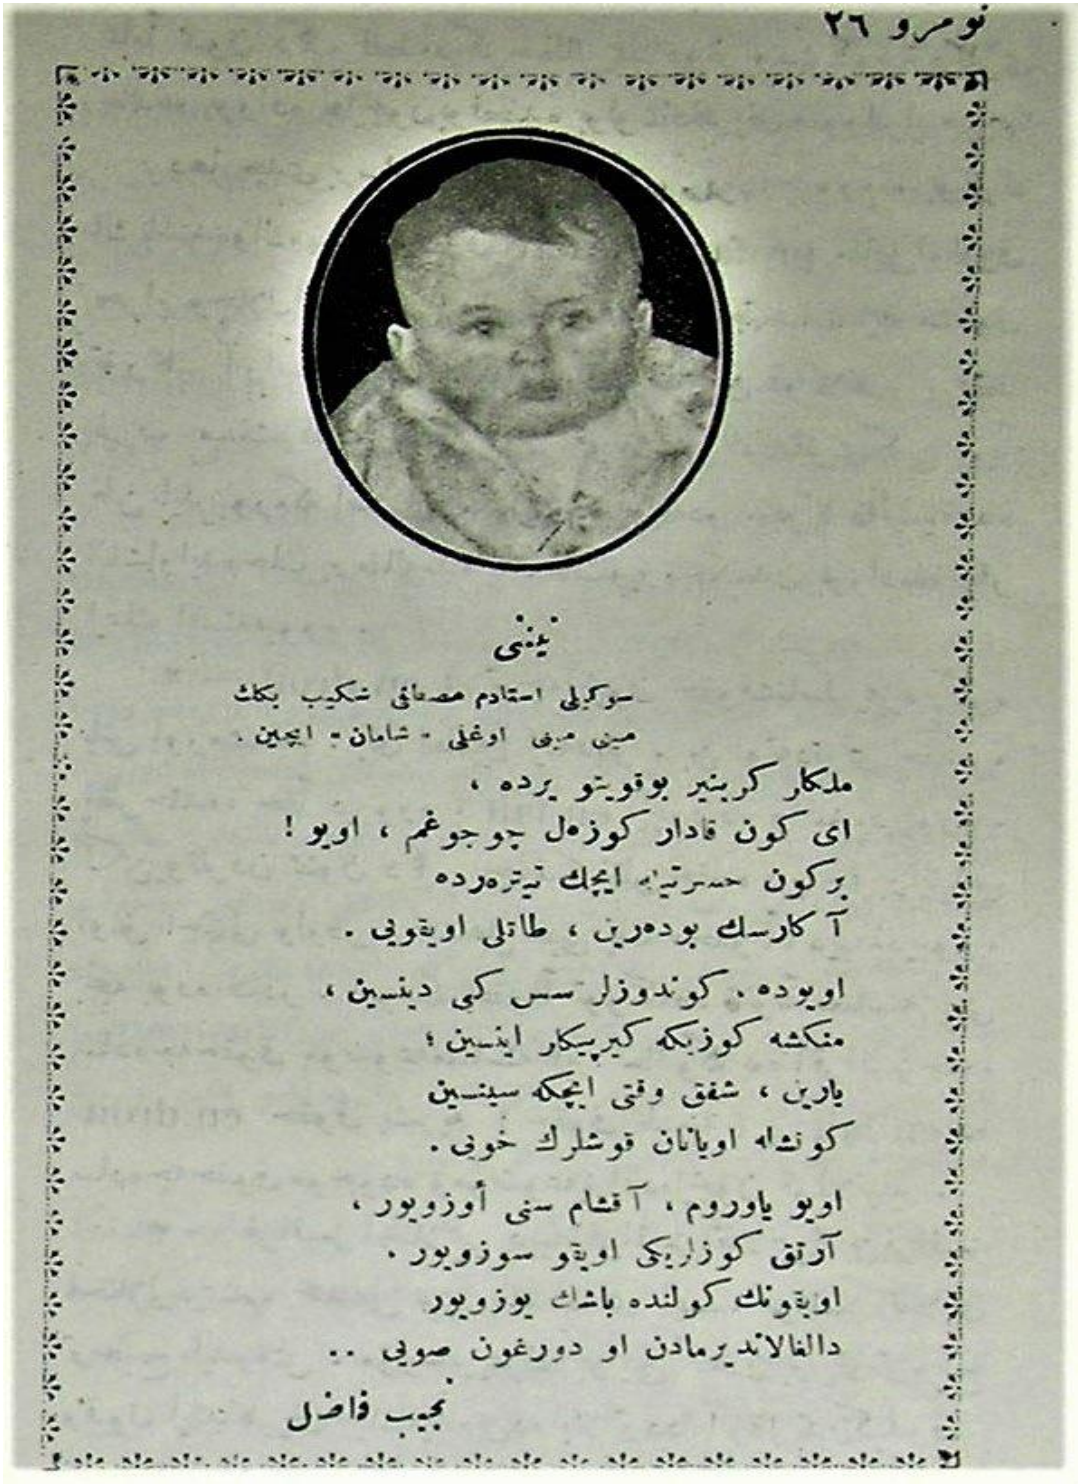 نومرو ٢٦
نیننی
سوکیلی استادم مصطفی شکیب بکك
مینی مینی اوغلی - شامان - ایچین .
ملکلر کزینیر بوقویتو یرده ،
ای کون قادار کوزەل چوجوغم ، اویو !
برکون حسرتیله ایچك تیترەرده
آ کارسك بودەرین ، طاتلی اویقویی .
اویوده . کوندوزلر سس کبی دینسین ،
منکشه کوزیکه کیرپیکلر اینسین ؛
یارین ، شفق وقتی ایچکه سینسین
کونشله اویانان قوشلرك خویی .
اویو یاوروم ، آقشام سنی أوزویور ،
آرتق کوزلریکی اویقو سوزویور .
اویقونك کولنده باشك یوزویور
دالغالاندیرمادن او دورغون صویی ..
نجیب فاضل